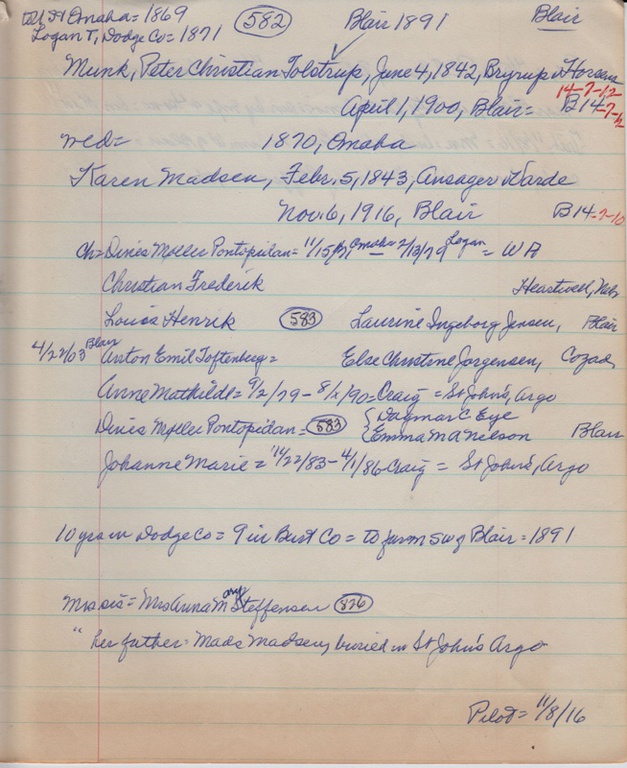 Omaha = 1869 (582) Blair 1891 Blair
Logan T, Dodge Co = 1871
Munk, Peter Christian Tolstrup, June 4, 1842, Bryrup v Horsens
14-7-12
April 1, 1900, Blair = B14-7-12
wed = 1870, Omaha
Karen Madsen, Febr. 5, 1843, Ansager Varde
Nov. 6, 1916, Blair B14-7-10
Ch = Dines Moller Pontopidan = 11/15/71 Omaha - 2/13/79 Logan = W A
Christian Frederik Heartwell, Neb
Louis Henrik (583) Laurine Ingeborg Jensen, Blair
4/22/03 Blair Anton Emil Toftenburg = Else Christine Jorgensen, Cozad
Anne Mathilde = 9/2/79 - 8/2/90 = Craig = St John's, Argo
Dines Moller Pontopidan = (583) { Dagmar C Eye
{ Emma M A Nelson Blair
Johanne Marie = 11/22/83 - 4/1/86 Craig = St John's, Argo
10 yrs in Dodge Co = 9 in Burt Co = to farm SW of Blair = 1891
Mrs sis = Mrs Anna Mary Steffensen (826)
" her father = Mads Madsen, buried in St John's Argo
Pilot = 11/8/16